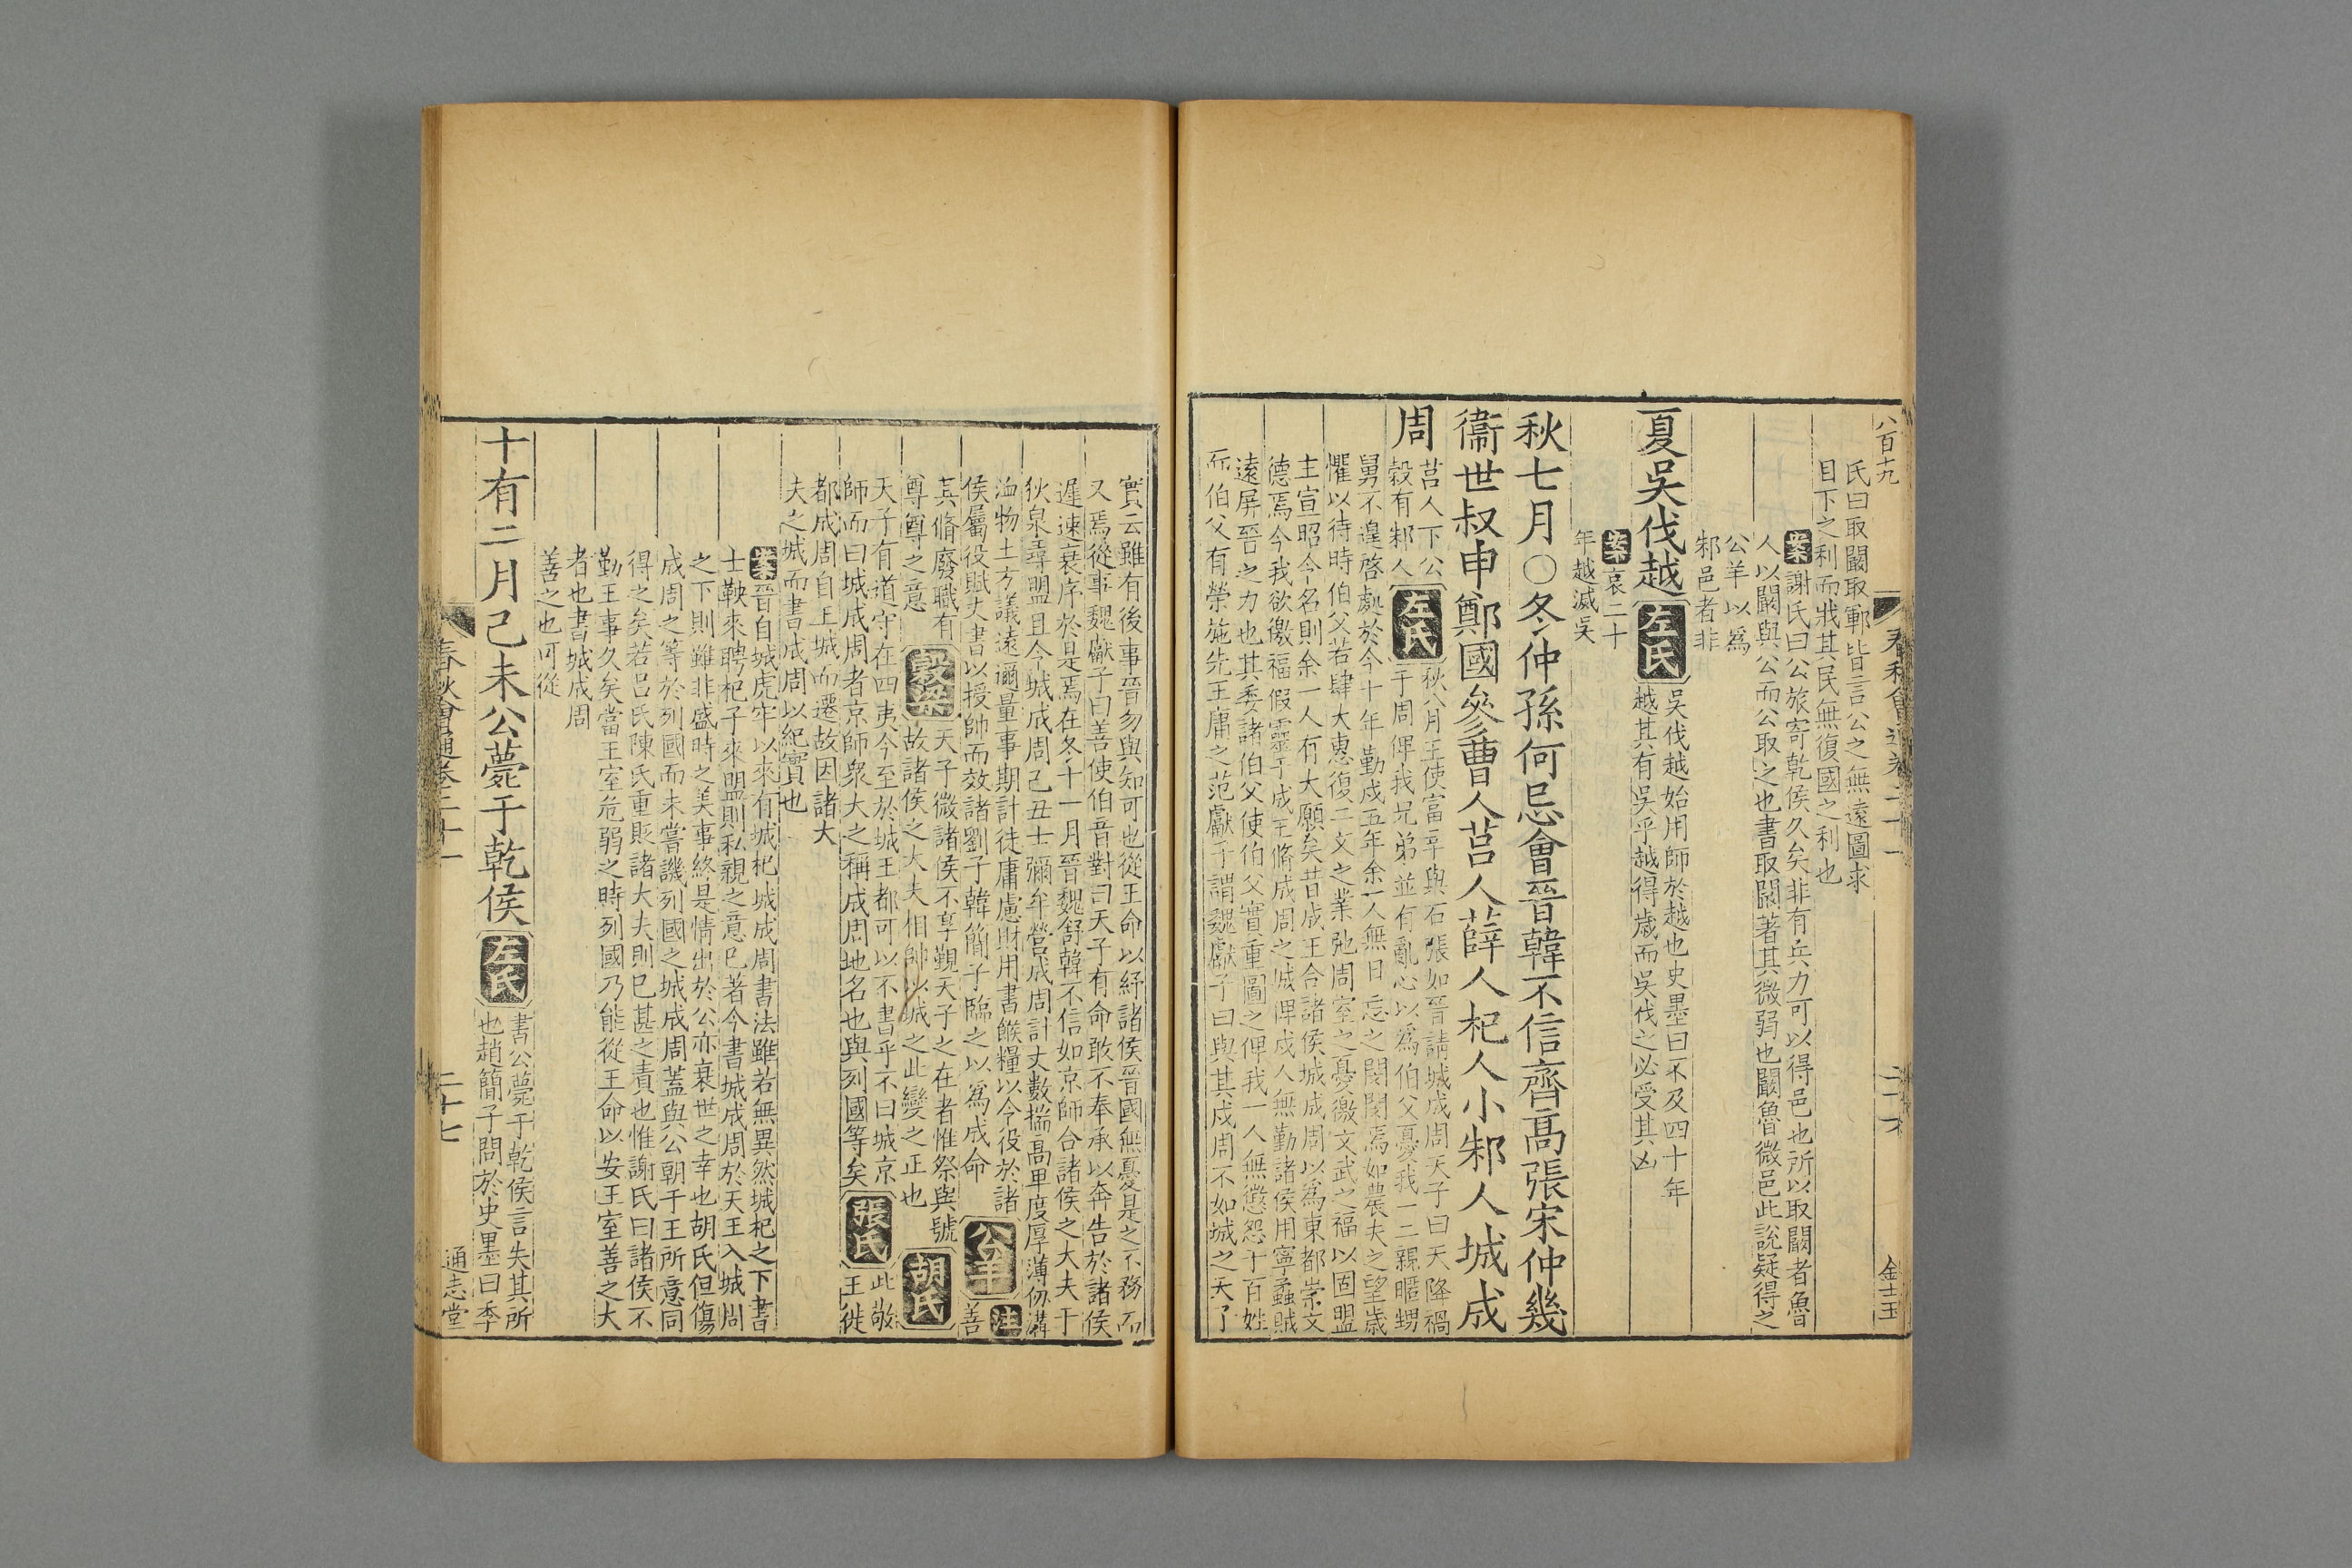 八百九 春秋會通卷二十一 二十六 金士玉
氏曰取闞取鄆皆言公之無遠圖求
目下之利而戕其民無復國之利也
案謝氏曰公旅寄乾侯久矣非有兵力可以得邑也所以取闞者魯
人以闞與公而公取之也書取闞著其微弱也闞魯微邑此說疑得之
公羊以爲
邾邑者非
夏吳伐越左氏吳伐越始用師於越也史墨曰不及四十年
越其有吳乎越得歲而吳伐之必受其凶
案哀二十
年越滅吳
秋七月○冬仲孫何忌會晉韓不信齊高張宋仲幾
衞世叔申鄭國參曹人莒人薛人杞人小邾人城成
周莒人下公
穀有邾人左氏秋八月王使富辛與石張如晉請城成周天子曰天降禍
于周俾我兄弟並有亂心以爲伯父憂我一二親暱甥
舅不遑啓處於今十年勤戍五年余一人無日忘之閔閔焉如農夫之望歲
懼以待時伯父若肆大惠復二文之業弛周室之憂徼文武之福以固盟
主宣昭令名則余一人有大願矣昔成王合諸侯城成周以爲東都崇文
德焉今我欲徼福假靈于成王脩成周之城俾戍人無勤諸侯用寧蟊賊
遠屏晉之力也其委諸伯父使伯父實重圖之俾我一人無懲怨于百姓
而伯父有榮施先王庸之范獻子謂魏獻子曰與其戍周不如城之天子
實云雖有後事晉勿與知可也從王命以紓諸侯晉國無憂是之不務而
又焉從事魏獻子曰善使伯音對曰天子有命敢不奉承以奔告於諸侯
遲速衰序於是焉在冬十一月晉魏舒韓不信如京師合諸侯之大夫于
狄泉尋盟且令城成周己丑士彌牟營成周計丈數揣高卑度厚薄仞溝
洫物土方議遠邇量事期計徒庸慮財用書餱糧以令役於諸
侯屬役賦丈書以授帥而效諸劉子韓簡子臨之以爲成命公羊注善
其脩廢職有
尊尊之意穀梁天子微諸侯不享覲天子之在者惟祭與號
故諸侯之大夫相帥以城之此變之正也胡氏
天子有道守在四夷今至於城王都可以不書乎不曰城京
師而曰城成周者京師衆大之稱成周地名也與列國等矣張氏此敬
王徙
都成周自王城而遷故因諸大
夫之城而書成周以紀實也
案晉自城虎牢以來有城杞城成周書法雖若無異然城杞之下書
士鞅來聘杞子來盟則私親之意已著今書城成周於天王入城周
之下則雖非盛時之美事終是情出於公亦衰世之幸也胡氏但傷
成周之等於列國而未嘗譏列國之城成周蓋與公朝于王所意同
得之矣若呂氏陳氏重貶諸大夫則已甚之責也惟謝氏曰諸侯不
勤王事久矣當王室危弱之時列國乃能從王命以安王室善之大
者也書城成周
善之也可從
十有二月己未公薨于乾侯左氏書公薨于乾侯言失其所
也趙簡子問於史墨曰季
春秋會通卷二十一 二十七 通志堂